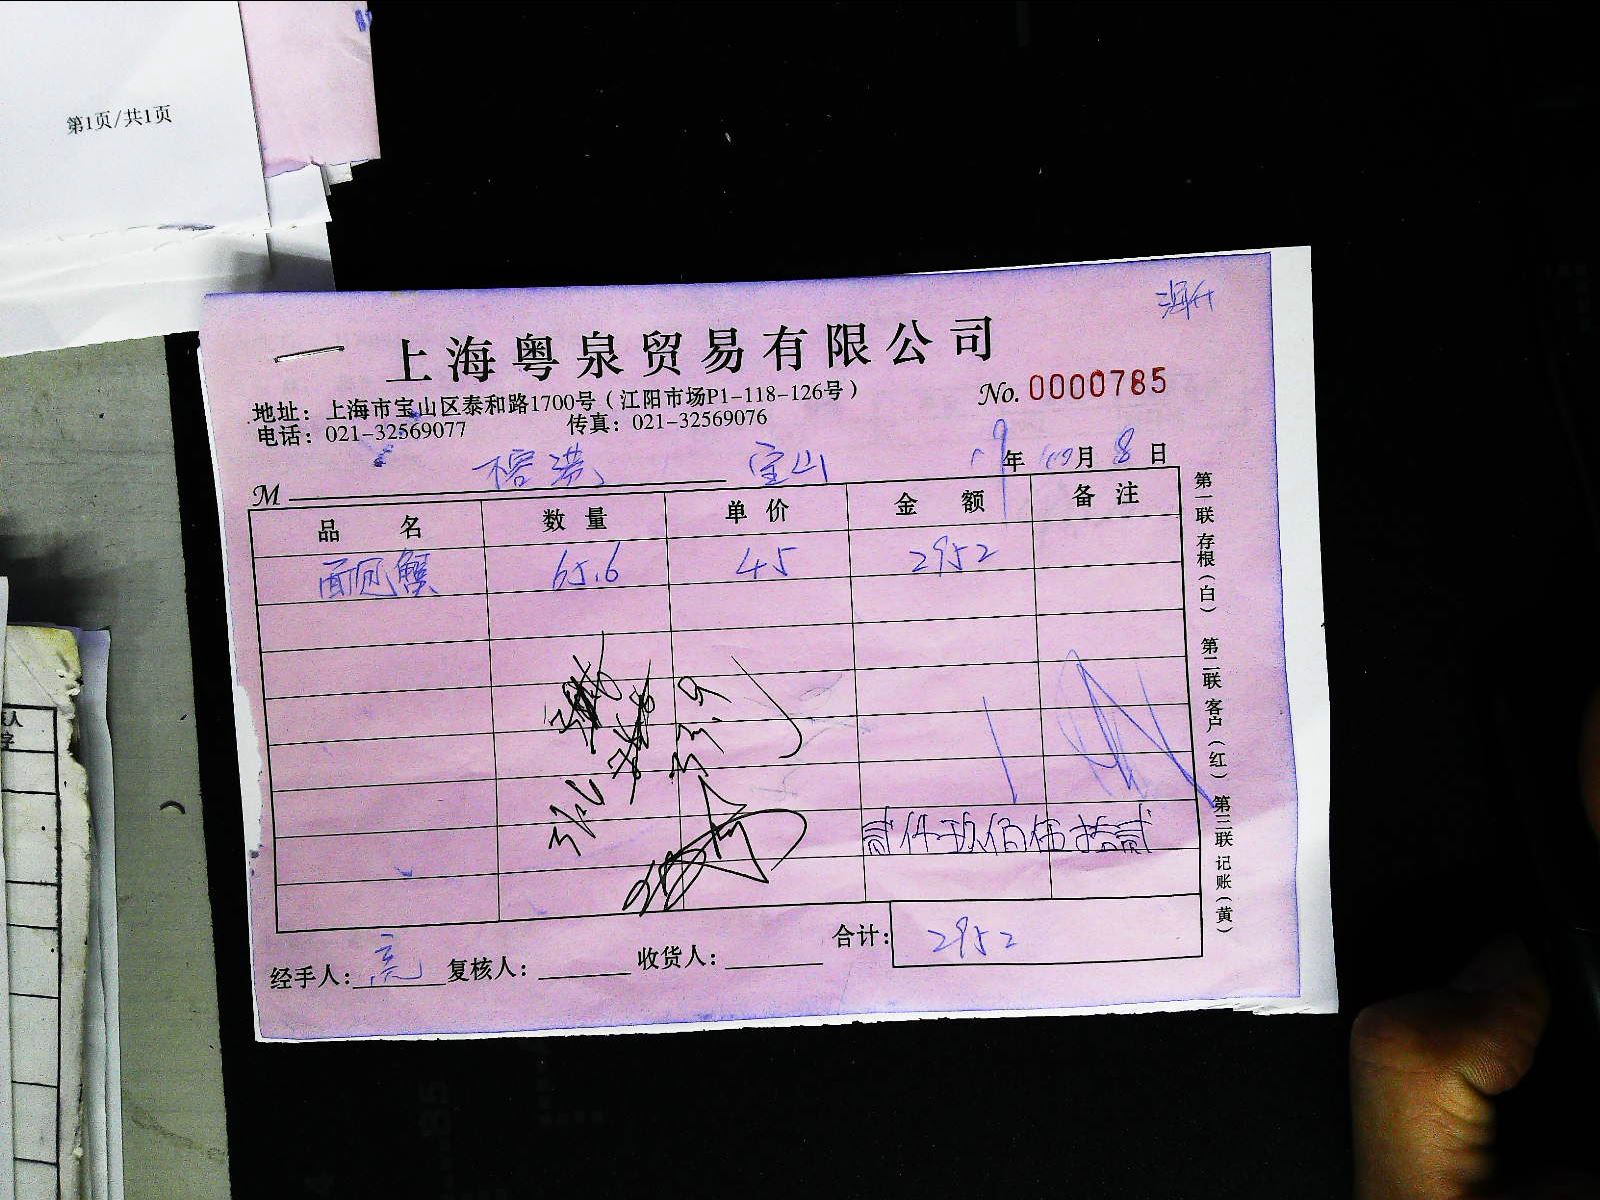 第1页/共1页
上海粤泉贸易有限公司
No. 0000785
地址：上海市宝山区泰和路1700号（江阳市场P1-118-126号）
电话：021-32569077 传真：021-32569076
M 宝山 19年 10月 8日
品名 数量 单价 金额 备注
面包蟹 65.6 45 2952
贰仟玖佰伍拾贰
合计：2952
经手人：亮 复核人： 收货人：
第一联 存根（白） 第二联 客户（红） 第三联 记账（黄）